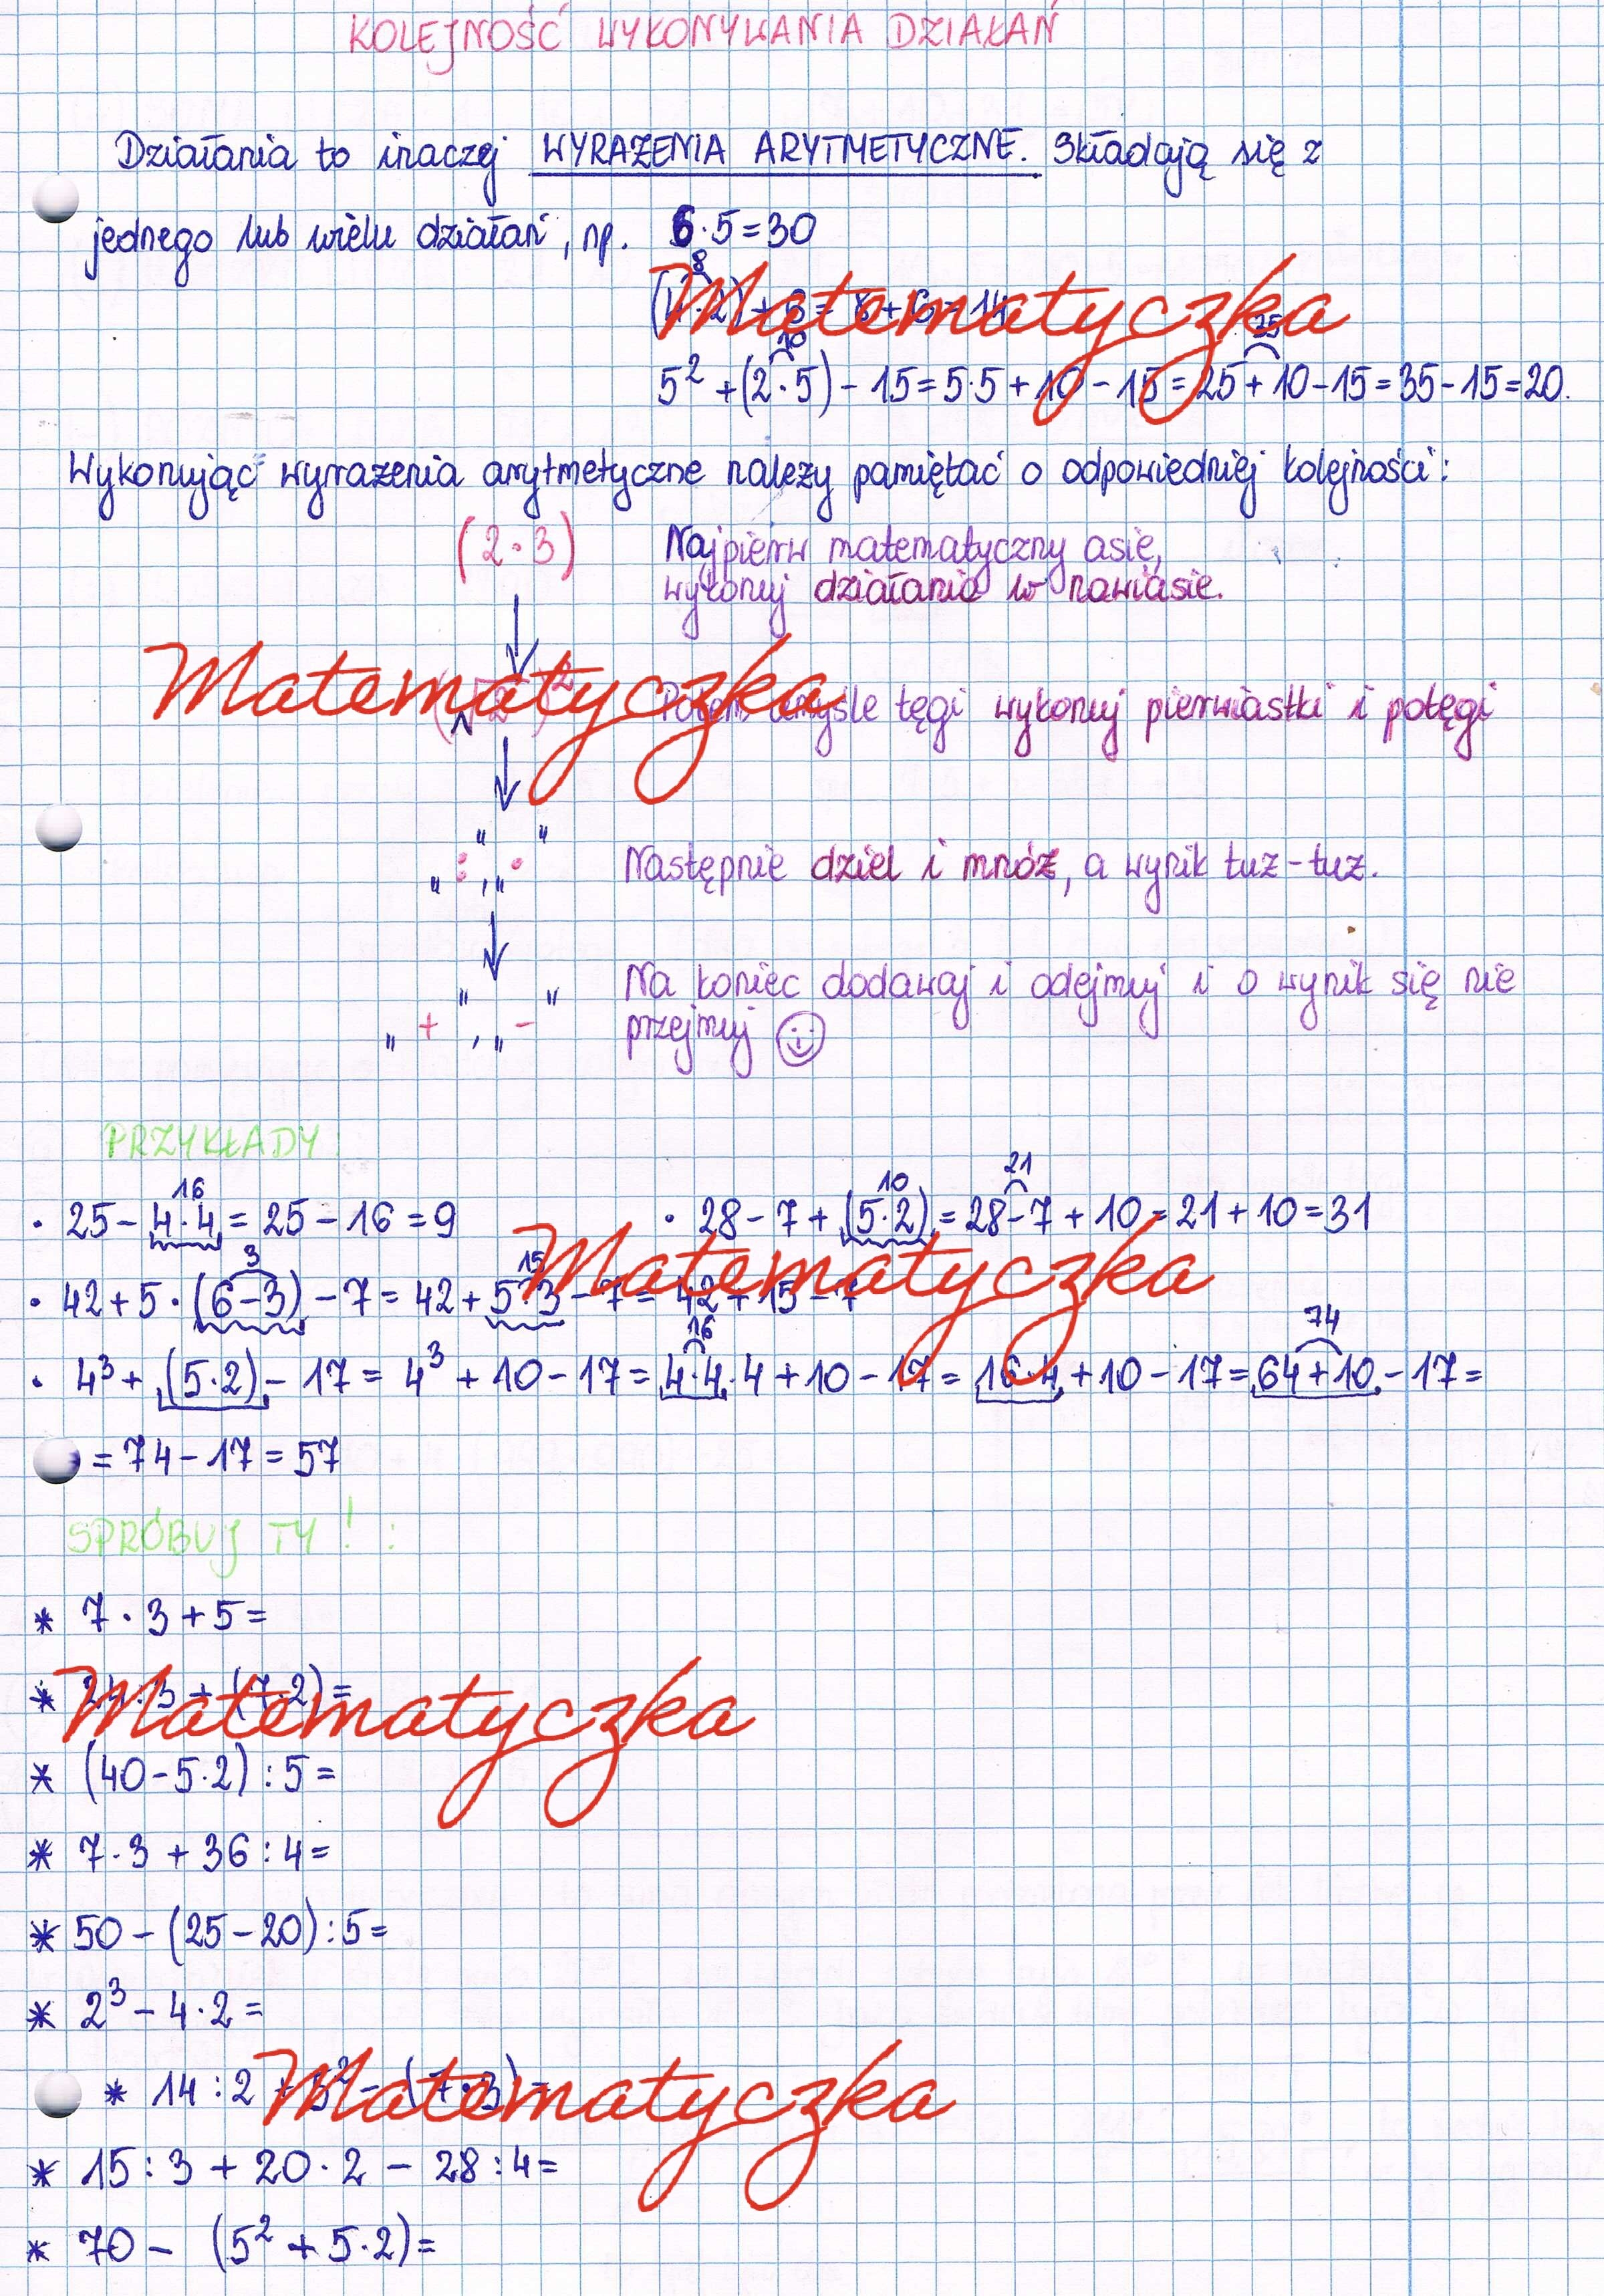 KOLEJNOŚĆ WYKONYWANIA DZIAŁAŃ
Działania to inaczej WYRAŻENIA ARYTMETYCZNE. Składają się z
jednego lub wielu działań, np. 6·5=30
8
(4·2)+6=8+6=14
Matematyczka
10 25
5² +(2·5) - 15 = 5·5 + 10 - 15 = 25 + 10-15 = 35-15=20.
Wykonując wyrażenia arytmetyczne należy pamiętać o odpowiedniej kolejności:
(2·3) Najpierw matematyczny asie,
wykonuj działania w nawiasie.
Matematyczka
Potem umyśle tęgi wykonuj pierwiastki i potęgi
„:”, „·” Następnie dziel i mnóż, a wynik tuż-tuż.
„+”, „-” Na koniec dodawaj i odejmuj i o wynik się nie
przejmuj
PRZYKŁADY:
16 10 21
· 25 - 4·4 = 25 - 16 = 9 · 28 - 7 + (5·2) = 28-7 + 10 = 21 + 10 = 31
Matematyczka
3 15
· 42 + 5 · (6-3) - 7 = 42 + 5·3 - 7 = 42 + 15 - 7
16 74
· 4³ + (5·2) - 17 = 4³ + 10 - 17 = 4·4·4 + 10 - 17 = 16·4 + 10 - 17 = 64 + 10 - 17 =
= 74 - 17 = 57
SPRÓBUJ TY! :
* 7 · 3 + 5 =
* 24 : 3 + (7·2) =
Matematyczka
* (40 - 5·2) : 5 =
* 7·3 + 36 : 4 =
* 50 - (25 - 20) : 5 =
* 2³ - 4·2 =
* 14 : 2 (7·3) =
Matematyczka
* 15 : 3 + 20 · 2 - 28 : 4 =
* 70 - (5² + 5·2) =